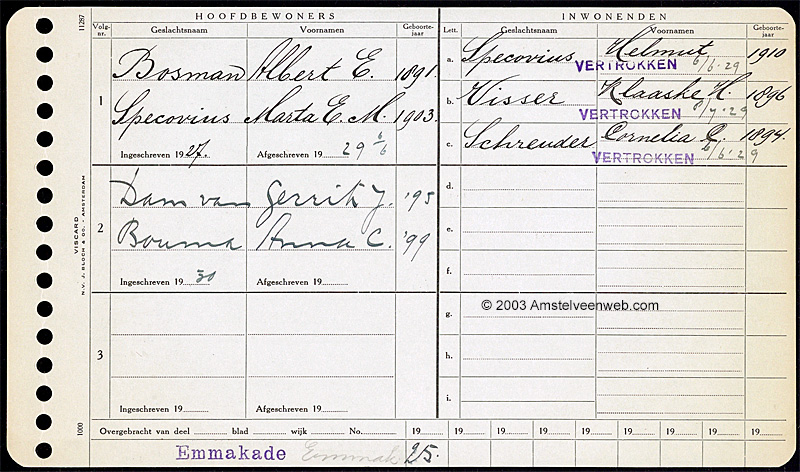 HOOFDBEWONERS
Volg-nr. Geslachtsnaam Voornamen Geboorte-jaar
1
Bosman Albert E. 1891.
Specovius Marta E. M. 1903.
Ingeschreven 1927. Afgeschreven 19 29 6/6
2
Dam van Gerrit J. '95
Bouma Anna C. '99
Ingeschreven 19 30 Afgeschreven 19
3
Ingeschreven 19 Afgeschreven 19
INWONENDEN
Lett. Geslachtsnaam Voornamen Geboorte-jaar
a. Specovius Helmut 1910
VERTROKKEN 6/6-29
b. Visser Klaaske H. 1896
VERTROKKEN 8/4-29
c. Schreuder Cornelia C. 1894.
VERTROKKEN 6/6-29
d.
e.
f.
© 2003 Amstelveenweb.com
g.
h.
i.
Overgebracht van deel blad wijk No. 19 19 19 19 19 19 19 19 19
Emmakade Emmak 25.
11287
VISCARD
N.V. J. BLOCH & CO. - AMSTERDAM
1000